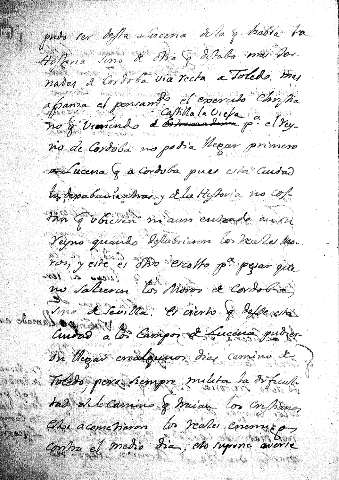 pudo ser desta Lucena de la q habla la
Historia sino de otra q estaba mas Jor
nadas de Cordoba via recta a Toledo, mas
afianza el pensam.to el exercito Christia
no q viniendo de Castilla la Vieja p.a el Rey
no de Cordoba no podia llegar primero
a Lucena q a Cordoba pues esta Ciudad
la dexaban atras, y de la Historia no cons
tan q ubiesen ni aun entrado en su
Reyno quando descubrieron los reales Mo
ros, y este es otro escollo p.a pensar que
no salieron los Moros de Cordoba
sino de Sevilla. El cierto q desde esta
Ciudad a los Campos de Lucena pudie
ron llegar en algunos dias camino de
Toledo pero siempre milita la dificul
dad del camino q traian los cristianos
Estos acometieron los reales enemigos
contra el medio dia, esto supone averse